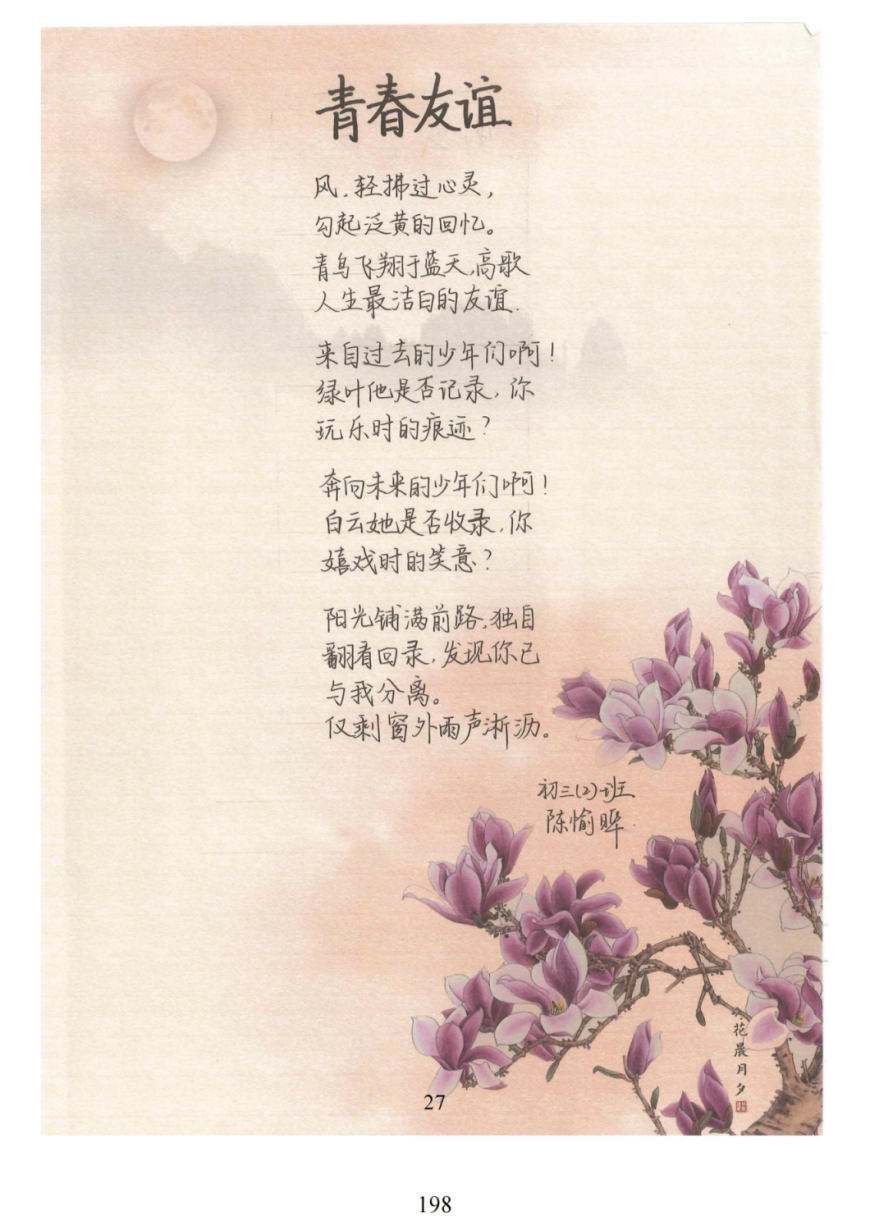 青春友谊
风.轻拂过心灵,
勾起泛黄的回忆。
青鸟飞翔于蓝天,高歌
人生最洁白的友谊.
来自过去的少年们啊!
绿叶他是否记录,你
玩乐时的痕迹?
奔向未来的少年们啊!
白云她是否收录,你
嬉戏时的笑意?
阳光铺满前路,独自
翻看回录,发现你已
与我分离。
仅剩窗外雨声淅沥。
初三(2)班
陈愉晔.
花晨月夕
27
198